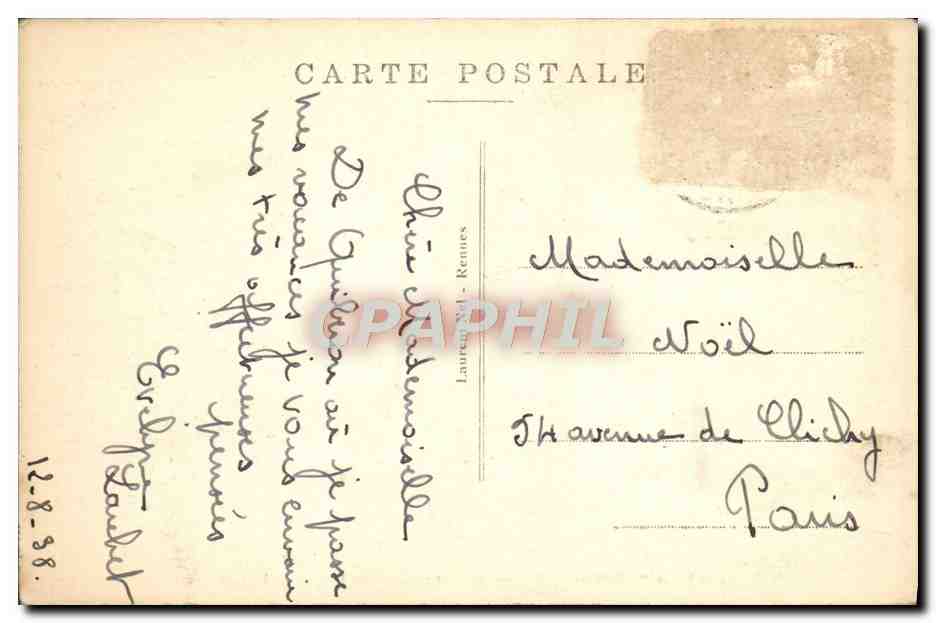 CARTE POSTALE
Chère Mademoiselle
De Quibron où je passe
mes vacances je vous envoie
mes très affectueuses
pensées
Evelyne
12-8-38.
Laurent Nel - Rennes
Mademoiselle
Noël
54 avenue de Clichy
Paris
CPAPHIL